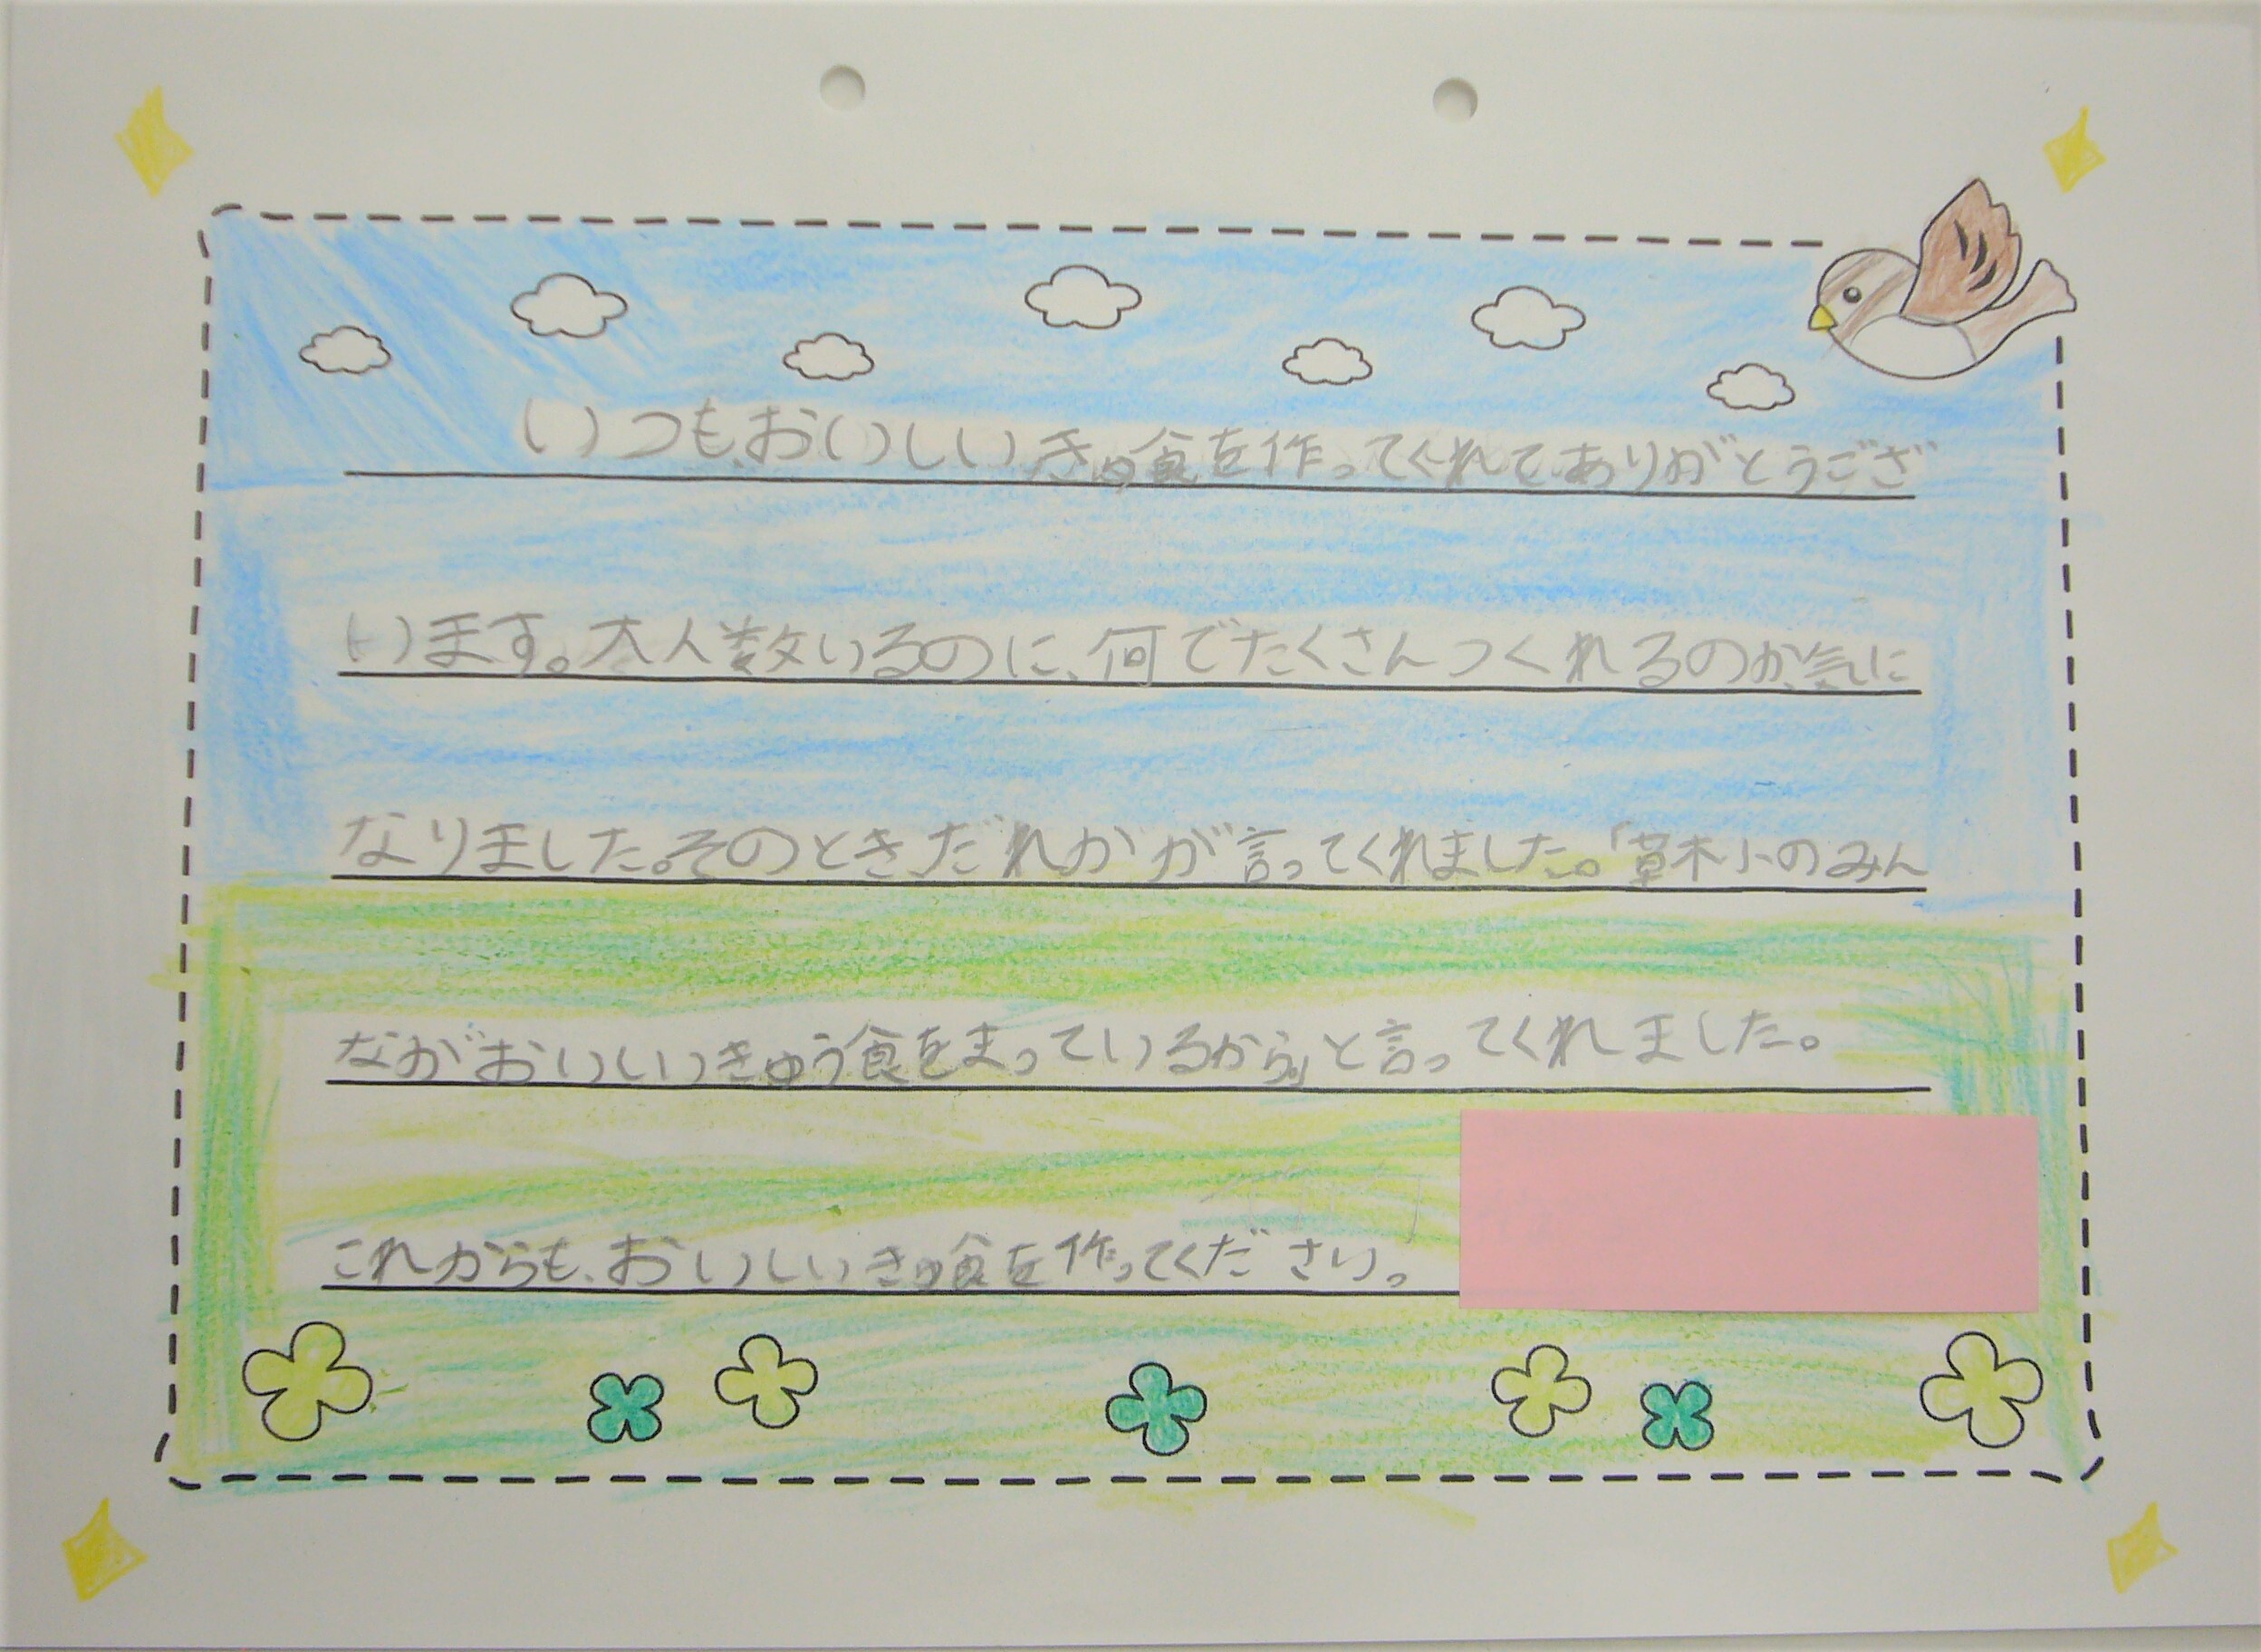 いつも、おいしいきゅ食を作ってくれてありがとうござ
います。大人数いるのに、何でたくさんつくれるのか、気に
なりました。そのときだれかが言ってくれました。「草木小のみん
ながおいしいきゅう食をまっているから」と言ってくれました。
これからも、おいしいきゅ食を作ってください。